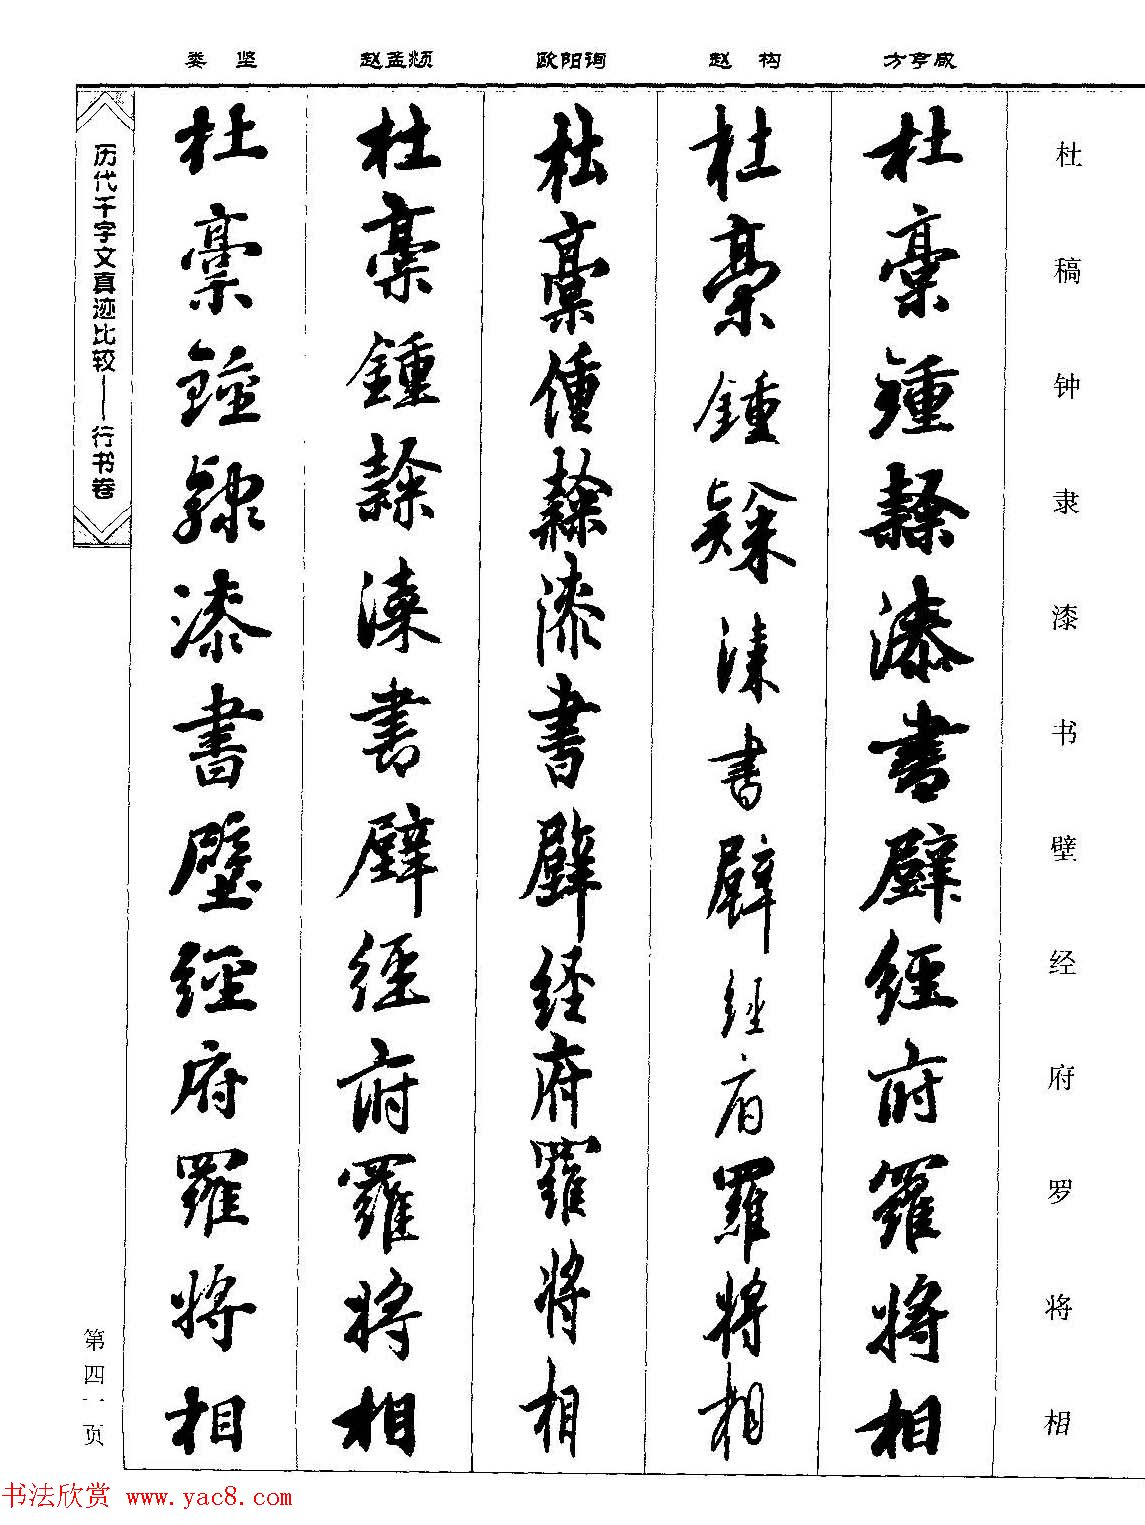 娄坚 赵孟頫 欧阳询 赵构 方亨咸
杜稿钟隶漆书壁经府罗将相
杜稾鍾隸漆書壁經府羅將相
杜稾鍾隸漆書壁經府羅將相
杜稾鍾隸漆書壁經府羅將相
杜稾鍾隸漆書壁經府羅將相
杜稾鍾隸漆書壁經府羅將相
历代千字文真迹比较——行书卷
第四一页
书法欣赏 www.yac8.com